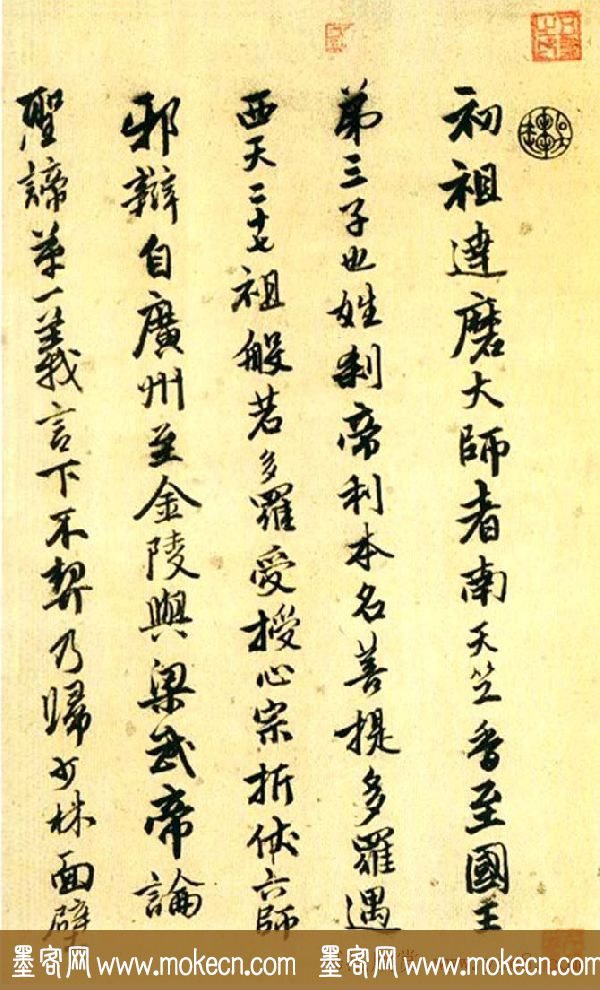 初祖達磨大師者南天竺香至國王
第三子也姓刹帝利本名菩提多羅遇
西天二十七祖般若多羅受授心宗折伏六師
邪辯自廣州至金陵與梁武帝論
聖諦第一義言下不契乃歸少林面壁
墨客网 www.mokecn.com 墨客网 www.mokecn.com